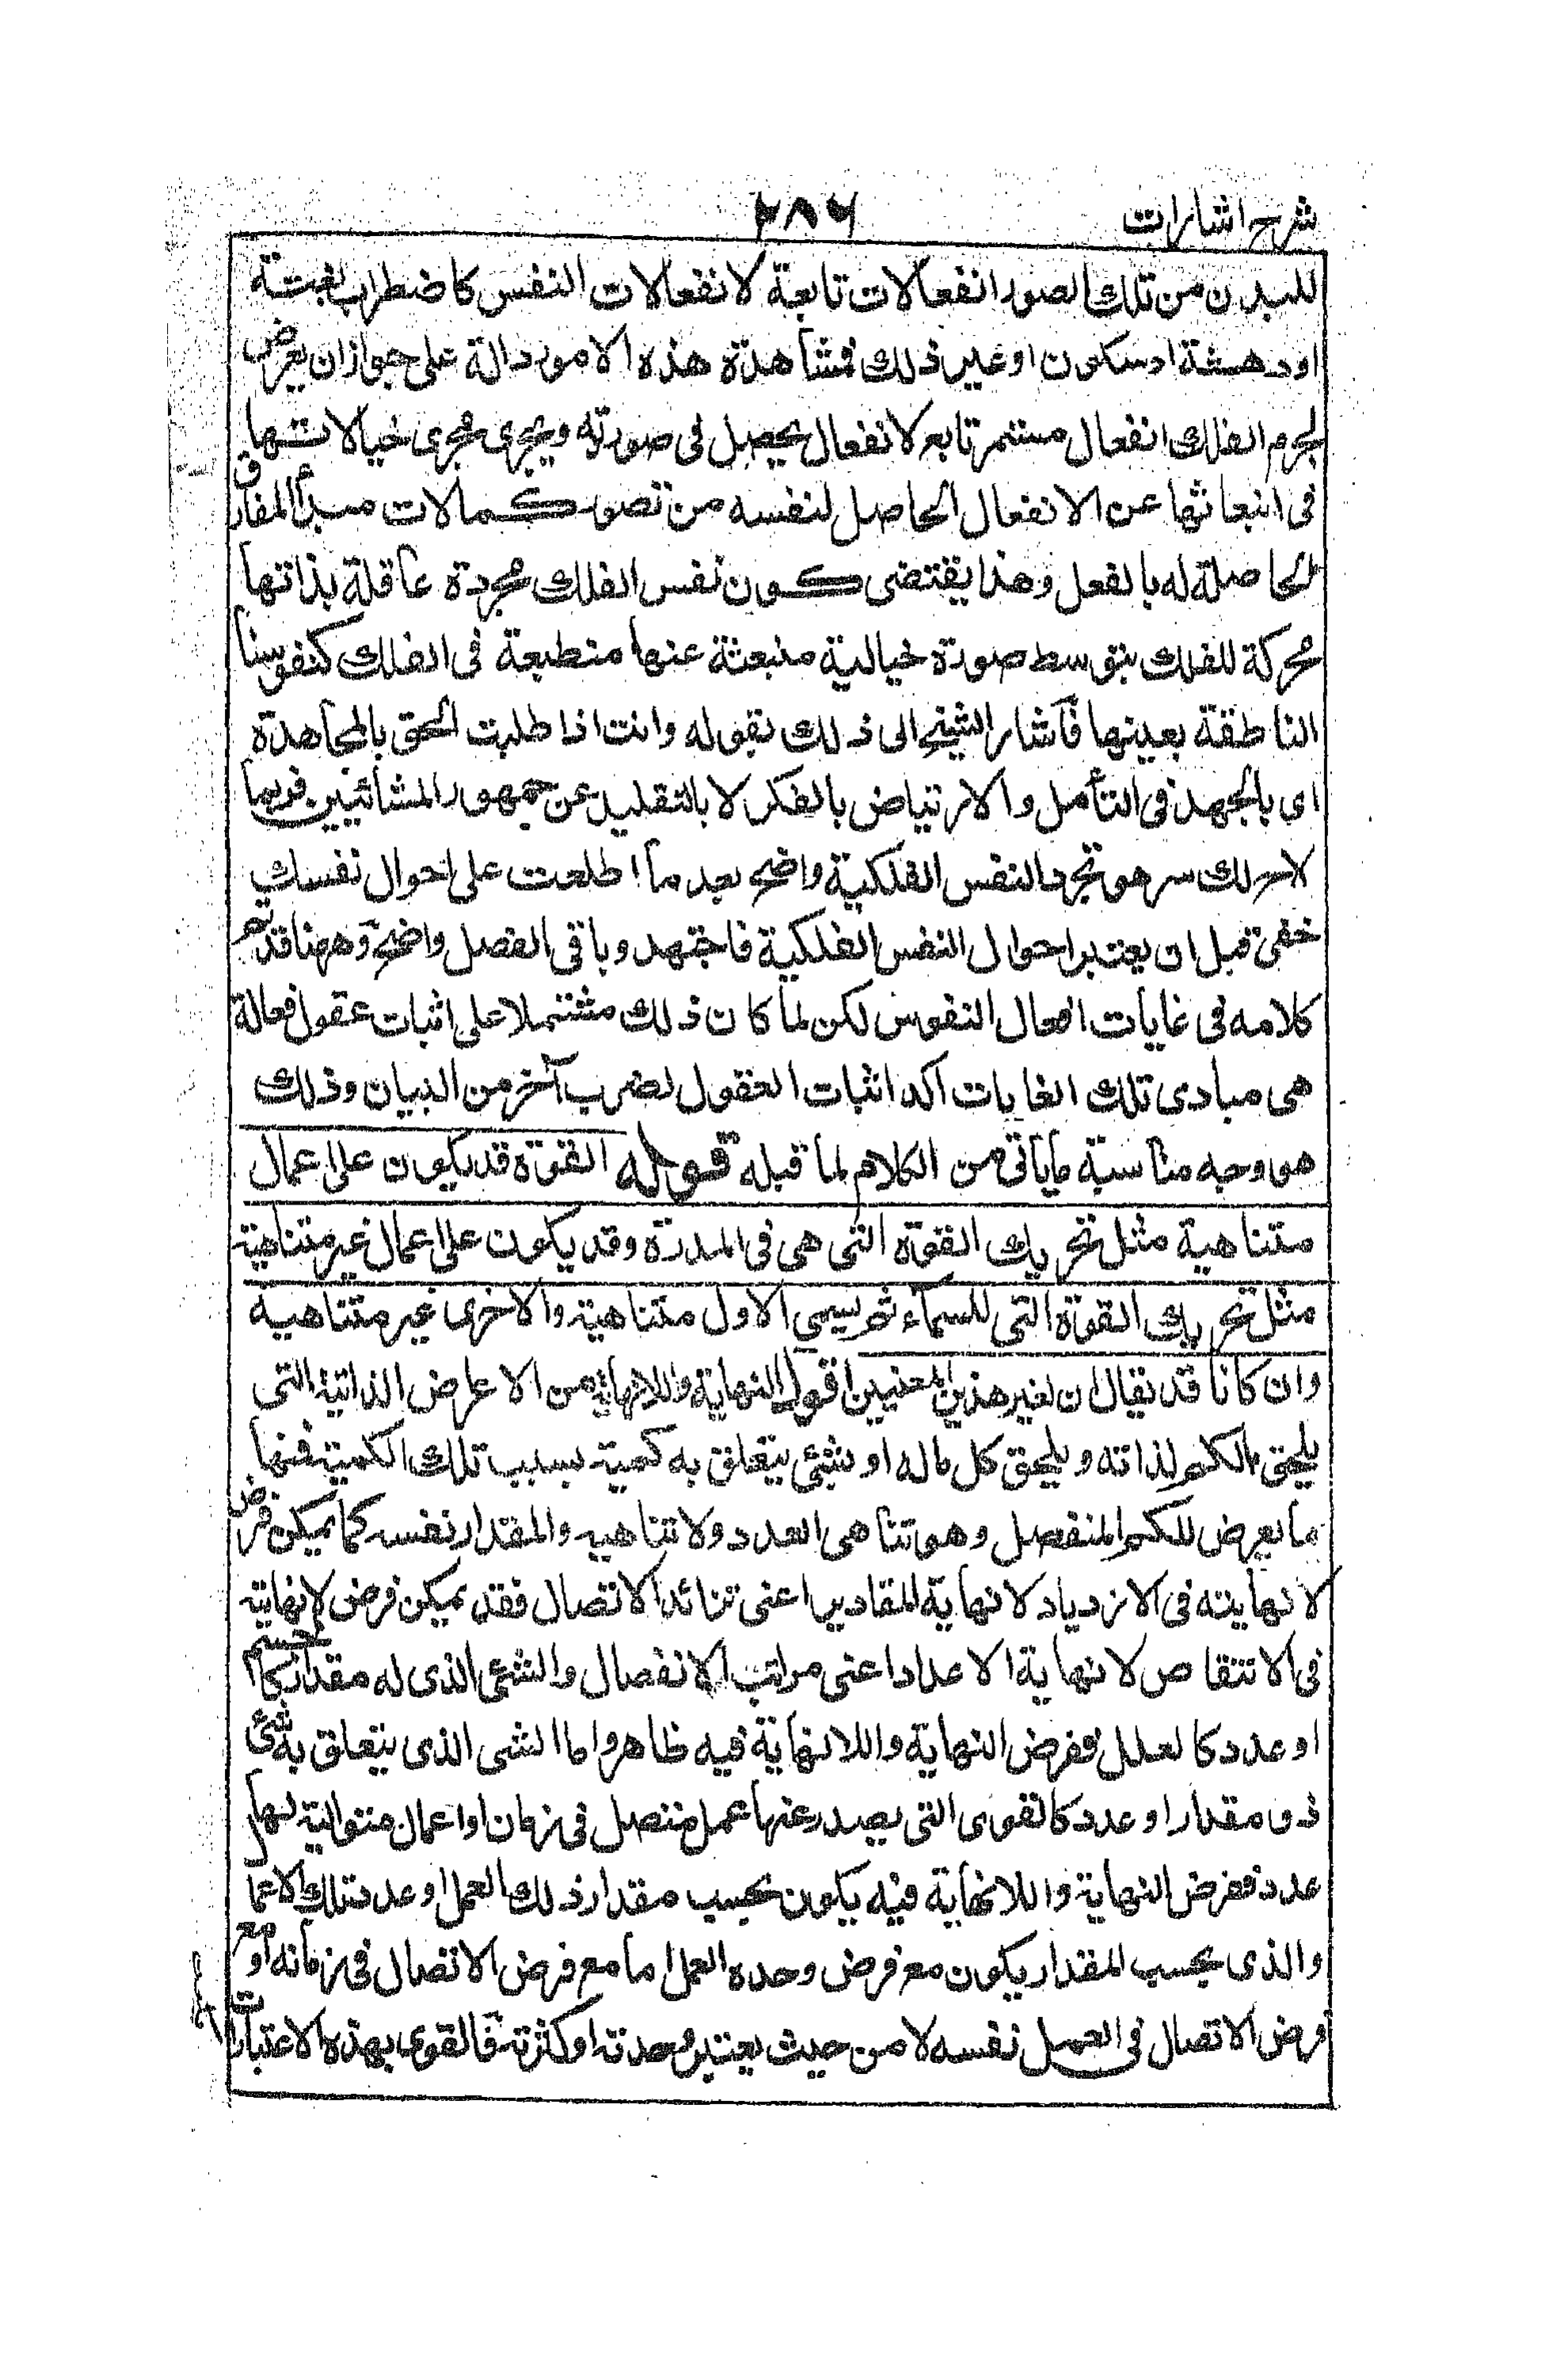 شرح اشارات
٢٨٦
للبدن من تلك الصور انفعالات تابعة لانفعالات النفس كاضطراب بغتة
او دهشة او سكون او غير ذلك فمشاهدة هذه الامور دالة على جواز ان يعرض
لجرم الفلك انفعال مستمر تابع لانفعال يحصل فى صورته ويجرى مجرى خيالاتها
فى انبعاثها عن الانفعال الحاصل لنفسه من تصور كمالات مبدأ المفارق
الحاصلة له بالفعل وهذا يقتضى كون نفس الفلك مجردة عاقلة بذاتها
محركة للفلك بتوسط صورة خيالية منبعثة عنها منطبعة فى الفلك كنفوسنا
الناطقة بعينها فأشار الشيخ الى ذلك بقوله وانت اذا طلبت الحق بالمجاهدة
اى بالجهد فى التأمل والارتياض بالفكر لا بالتقليد عن جمهور المشائيين فربما
لاح لك سر هو تجرد النفس الفلكية واضح بعد ما اطلعت على احوال نفسك
خفى قبل ان يعتبر احوال النفس الفلكية فاجتهد وباقى الفصل واضح وههنا قد تم
كلامه فى غايات افعال النفوس لكن لما كان ذلك مشتملا على اثبات عقول فعالة
هى مبادى تلك الغايات اكد اثبات العقول لضرب آخر من البيان وذلك
هو وجه مناسبة ما يأتى من الكلام لما قبله قوله القوة قد يكون على اعمال
متناهية مثل تحريك القوة التى هى فى المدرة وقد يكون على اعمال غير متناهية
مثل تحريك القوة التى للسماء ثم يسمى الاول متناهية والاخرى غير متناهية
وان كانا قد يقال ان لغير هذين المعنيين اقول النهاية واللانهاية من الاعراض الذاتية التى
يلحق بالكم لذاته ويلحق كل ماله او بشئ يتعلق به كمية بسبب تلك الكمية فمنها
ما يعرض للكم المنفصل وهو تناهى العدد ولا تناهيه والمقدار نفسه كما يمكن فرض
لا نهايته فى الازدياد لا نهاية المقادير اعنى تزائد الاتصال فقد يمكن فرض لا نهايته
فى الانتقاص لا نهاية الاعداد اعنى مراتب الانفصال والشئ الذى له مقدار كالجسم
او عدد كالعلل ففرض النهاية واللانهاية فيه ظاهر واما الشى الذى يتعلق به شئ
ذو مقدار او عدد كالقوى التى يصدر عنها عمل متصل فى زمان او اعمال متوالية لها
عدد ففرض النهاية واللانهاية فيه يكون بحسب مقدار ذلك العمل او عدد تلك الاعمال
والذى بحسب المقدار يكون مع فرض وحده العمل اما مع فرض الاتصال فى زمانه او مع
فرض الاتصال فى العمل نفسه لا من حيث يعتبر وحدته او كثرته فالقوى بهذه الاعتبارات